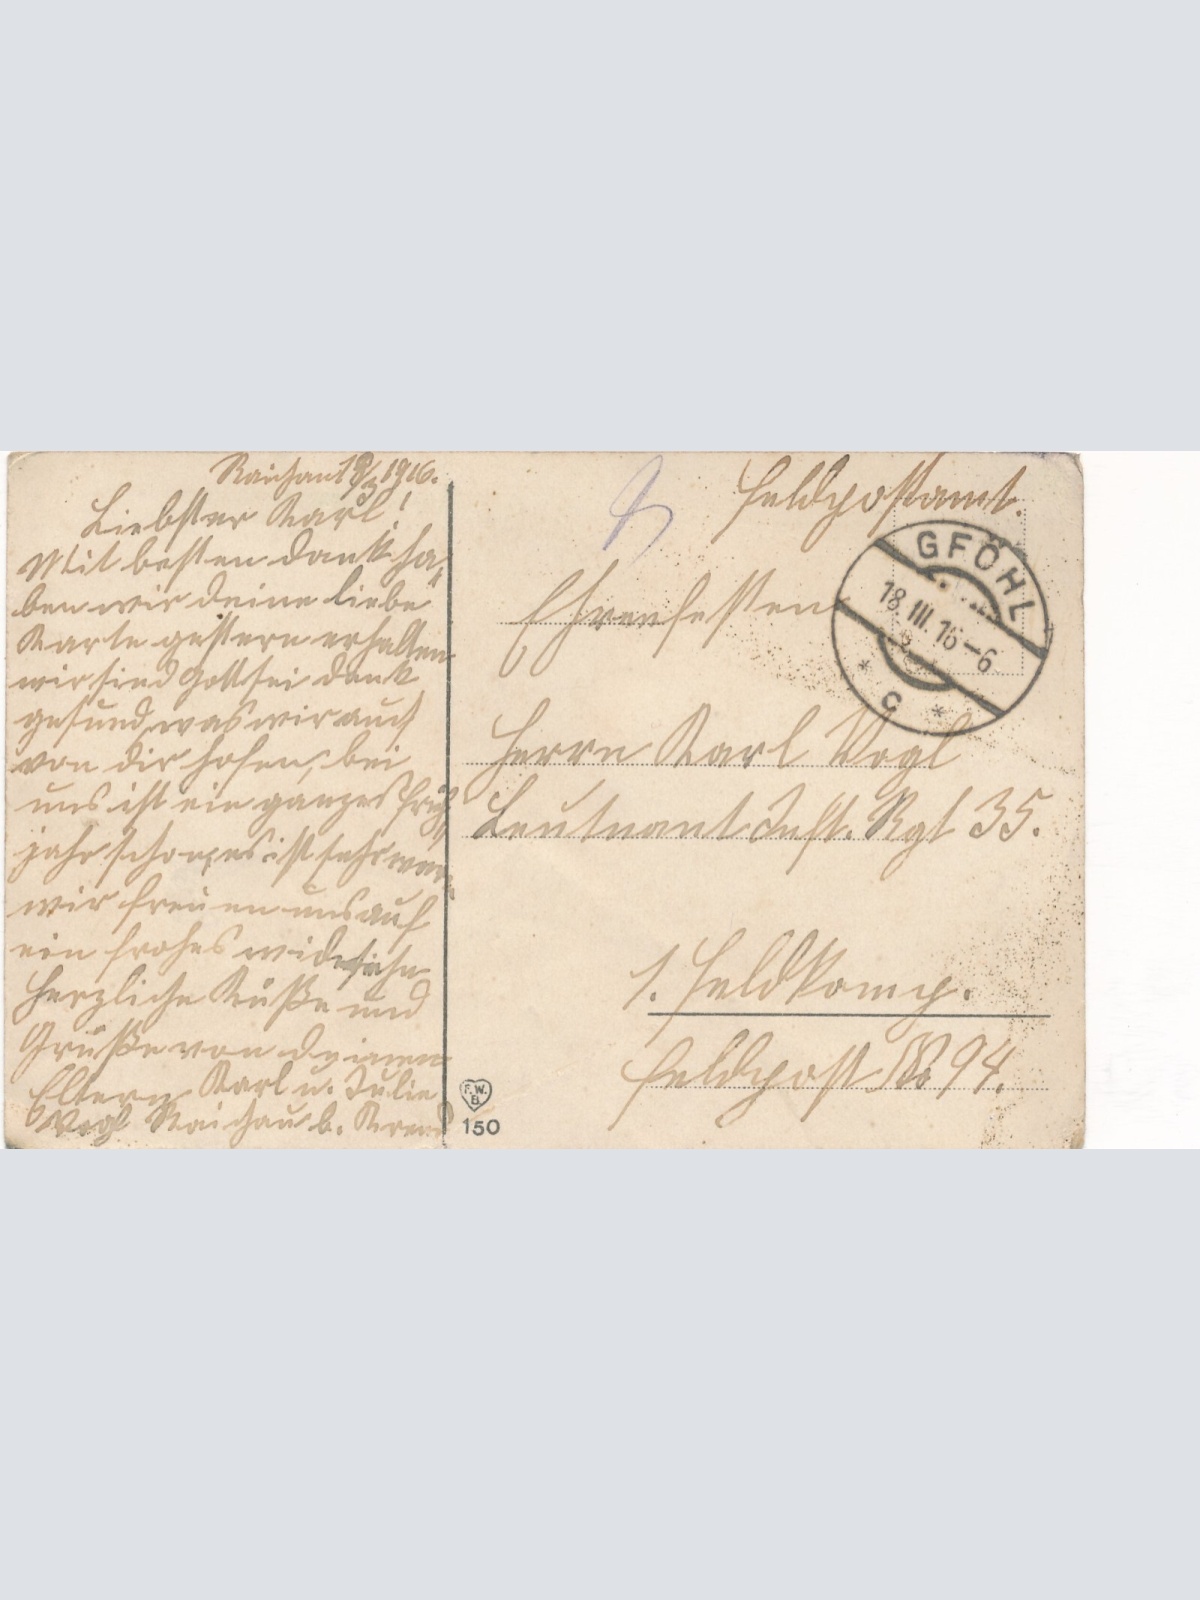 Reichau 18/3 1916.
Liebster Karl!
Mit besten Dank ha,
ben wir deine liebe
Karte gestern erhalten
wir sind Gott sei dank
gesund, was wir auch
von dir hofen, bei
uns ist ein ganzes Früh,
jahr schon, es ist sehr warm
wir freuen uns auf
ein frohes widersehn
Herzliche Küße und
Grüße von deinen
Eltern Karl u. Julie
Vogl b. Krems
Feldpostamt.
GFÖHL
18.III.16–6
* C *
Ehrenfesten
Herrn Karl Vogl
Leutnant Inft. Rgt 35.
1. Feldkomp.
Feldpost No 94.
F.W.
B.
150